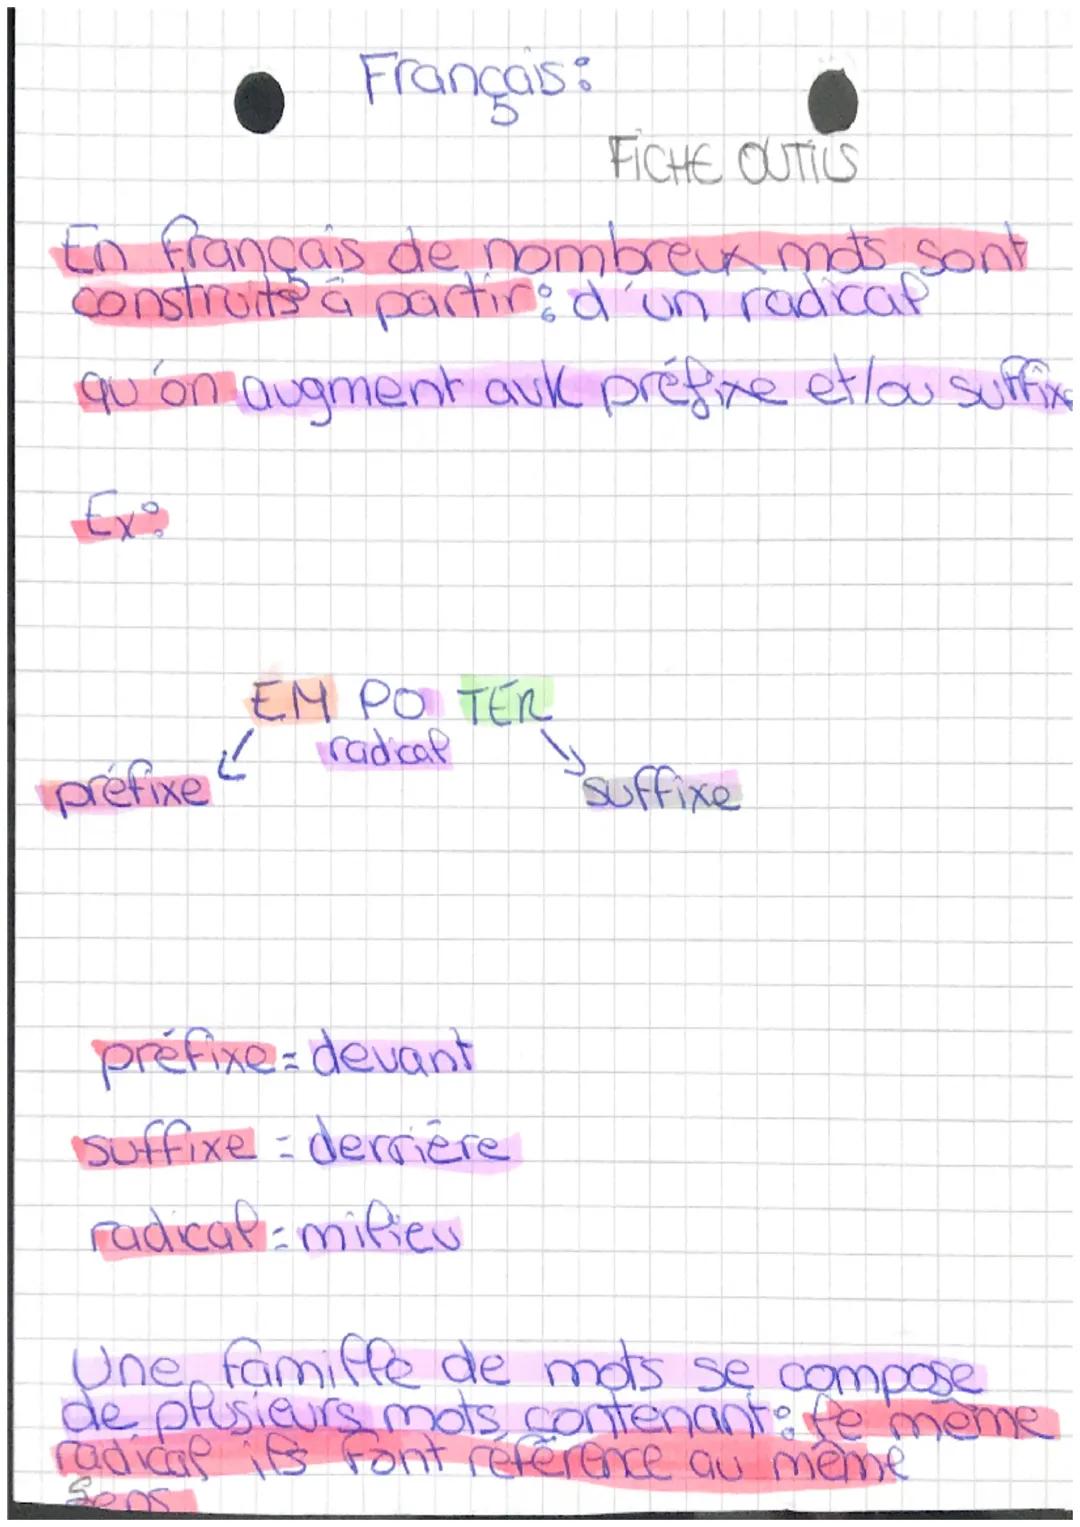 Français:
FICHE OUTILS
En français de nombreux mots sont
construits à partir: d'un radical
qu'on augment auk préfixe et/ou suffixe
Ex:
EM PO TER
radical
préfixe
suffixe
préfixe = devant
suffixe = derrière
radical = milieu
Une famille de mots se compose
de plusieurs mots contenant: le même
radical ils font référence au même
sens